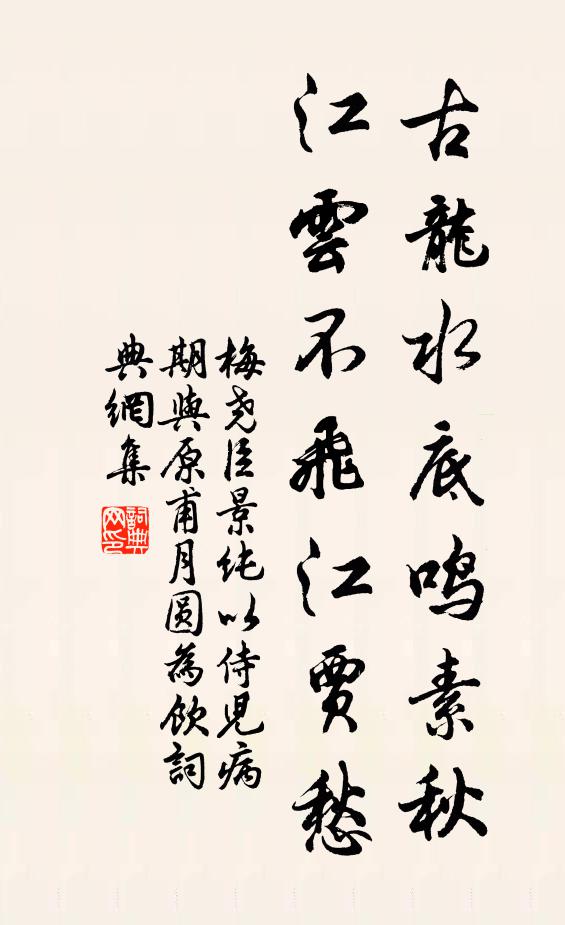 古龍水底鳴素秋
江雲不飛江賈愁
梅堯臣景純以侍児病
期與原甫月圓為飲詞
典網集
詞典网印